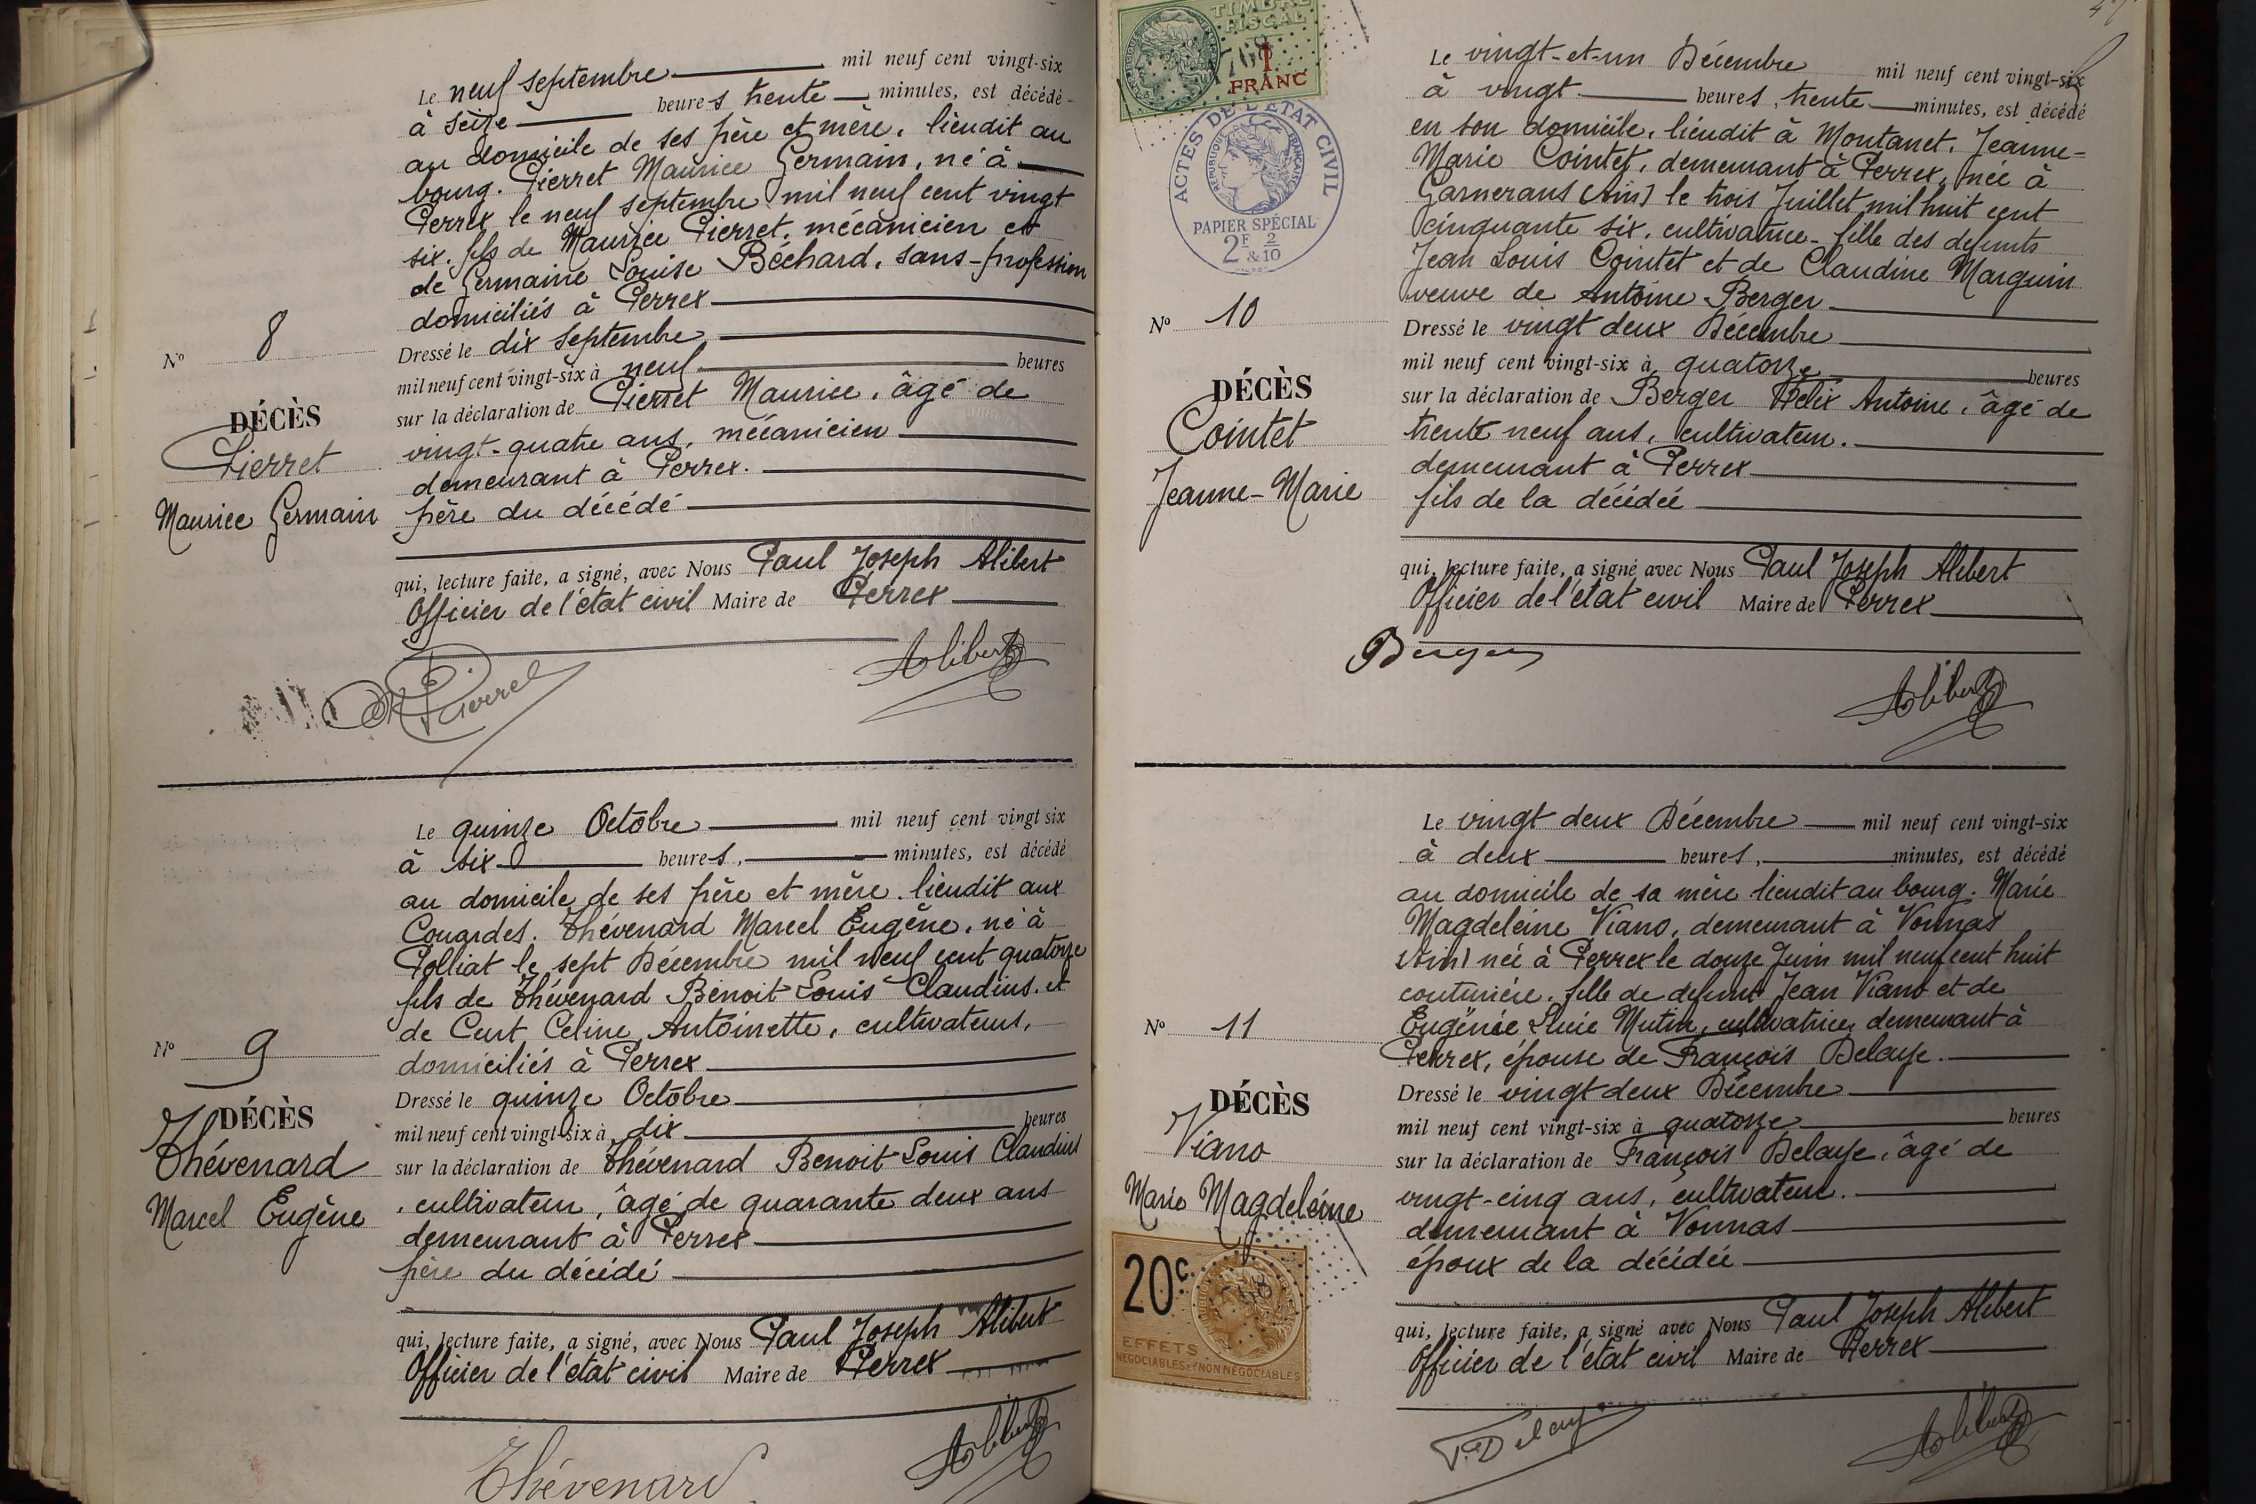 Le neuf septembre mil neuf cent vingt-six
à seize heures trente minutes, est décédé
au domicile de ses père et mère, lieudit au
bourg. Pierret Maurice Germain, né à
Perrex le neuf septembre mil neuf cent vingt
six. fils de Maurice Pierret, mécanicien et
de Germaine Louise Béchard, sans-profession
domiciliés à Perrex
Dressé le dix septembre
mil neuf cent vingt-six à neuf heures
sur la déclaration de Pierret Maurice, âgé de
vingt-quatre ans, mécanicien
demeurant à Perrex.
père du décédé
qui, lecture faite, a signé, avec Nous Paul Joseph Alibert
Officier de l'état civil Maire de Perrex
Alibert
No 8
DÉCÈS
Pierret
Maurice Germain
Le quinze Octobre mil neuf cent vingt six
à six heures, minutes, est décédé
au domicile de ses père et mère lieudit aux
Couardes. Thévenard Marcel Eugène, né à
Polliat le sept Décembre mil neuf cent quatorze
fils de Thévenard Benoit Louis Claudius. et
de Curt Celine Antoinette, cultivateurs,
domiciliés à Perrex
Dressé le quinze Octobre
mil neuf cent vingt-six à dix heures
sur la déclaration de Thévenard Benoit Louis Claudius
, cultivateur, âgé de quarante deux ans
demeurant à Perrex
père du décédé
qui, lecture faite, a signé, avec Nous Paul Joseph Alibert
Officier de l'état civil Maire de Perrex
Thévenard
Alibert
No 9
DÉCÈS
Thévenard
Marcel Eugène
TIMBRE
FISCAL
768
1
FRANC
ACTES DE L'ÉTAT CIVIL
RÉPUBLIQUE FRANÇAISE
PAPIER SPÉCIAL
2F 2
&10
Le vingt-et-un Décembre mil neuf cent vingt-six
à vingt heures, trente minutes, est décédé
en son domicile, lieudit à Montanet. Jeanne-
Marie Cointet, demeurant à Perrex, née à
Garnerans (Ain) le trois Juillet mil huit cent
cinquante six, cultivatrice. fille des defunts
Jean Louis Cointet et de Claudine Marguin
veuve de Antoine Berger
Dressé le vingt deux Décembre
mil neuf cent vingt-six à quatorze heures
sur la déclaration de Berger Félix Antoine, âgé de
trente neuf ans, cultivateur.
demeurant à Perrex
fils de la décédée
qui, lecture faite, a signé avec Nous Paul Joseph Alibert
Officier de l'état civil Maire de Perrex
Berger
Alibert
No 10
DÉCÈS
Cointet
Jeanne-Marie
Le vingt deux Décembre mil neuf cent vingt-six
à deux heures, minutes, est décédé
au domicile de sa mère lieudit au bourg. Marie
Magdeleine Viano, demeurant à Vonnas
(Ain) née à Perrex le douze Juin mil neuf cent huit
couturière. fille de defunt Jean Viano et de
Eugénie Lucie Mutin, cultivatrice, demeurant à
Perrex, épouse de François Delaye.
Dressé le vingt deux Décembre
mil neuf cent vingt-six à quatorze heures
sur la déclaration de François Delaye, âgé de
vingt-cinq ans, cultivateur.
demeurant à Vonnas
époux de la décédée
qui, lecture faite, a signé avec Nous Paul Joseph Alibert
Officier de l'état civil Maire de Perrex
F. Delaye
Alibert
No 11
DÉCÈS
Viano
Marie Magdeleine
20c.
EFFETS
NÉGOCIABLES ET NON NÉGOCIABLES